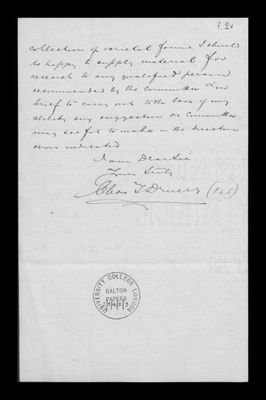 f. 2v
collection of varietal forms I should
be happy to supply material for
research to any qualified person
recommended by the Committee and in
brief to carry out to the best of my
ability any suggestion the Committee
may see fit to make in the direction
above indicated
I am Dear Sir
Yours truly
Chas T Druery (F.L.S)
UNIVERSITY COLLEGE LONDON
GALTON
PAPERS